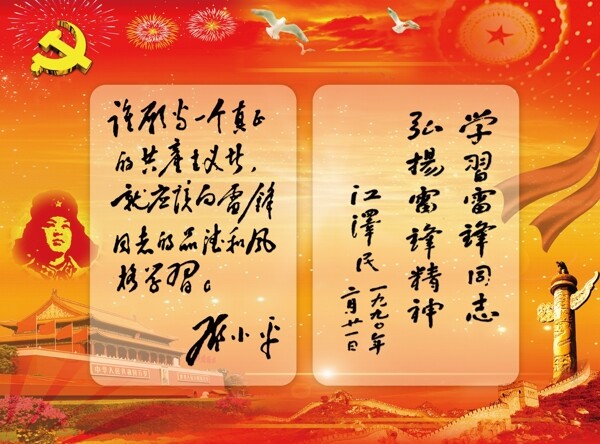 谁愿当一个真正
的共產主义者，
就应该向雷锋
同志的品德和风
格学習。
邓小平
学習雷鋒同志
弘揚雷鋒精神
江澤民
一九九〇年
二月廿一日
中华人民共和国万岁